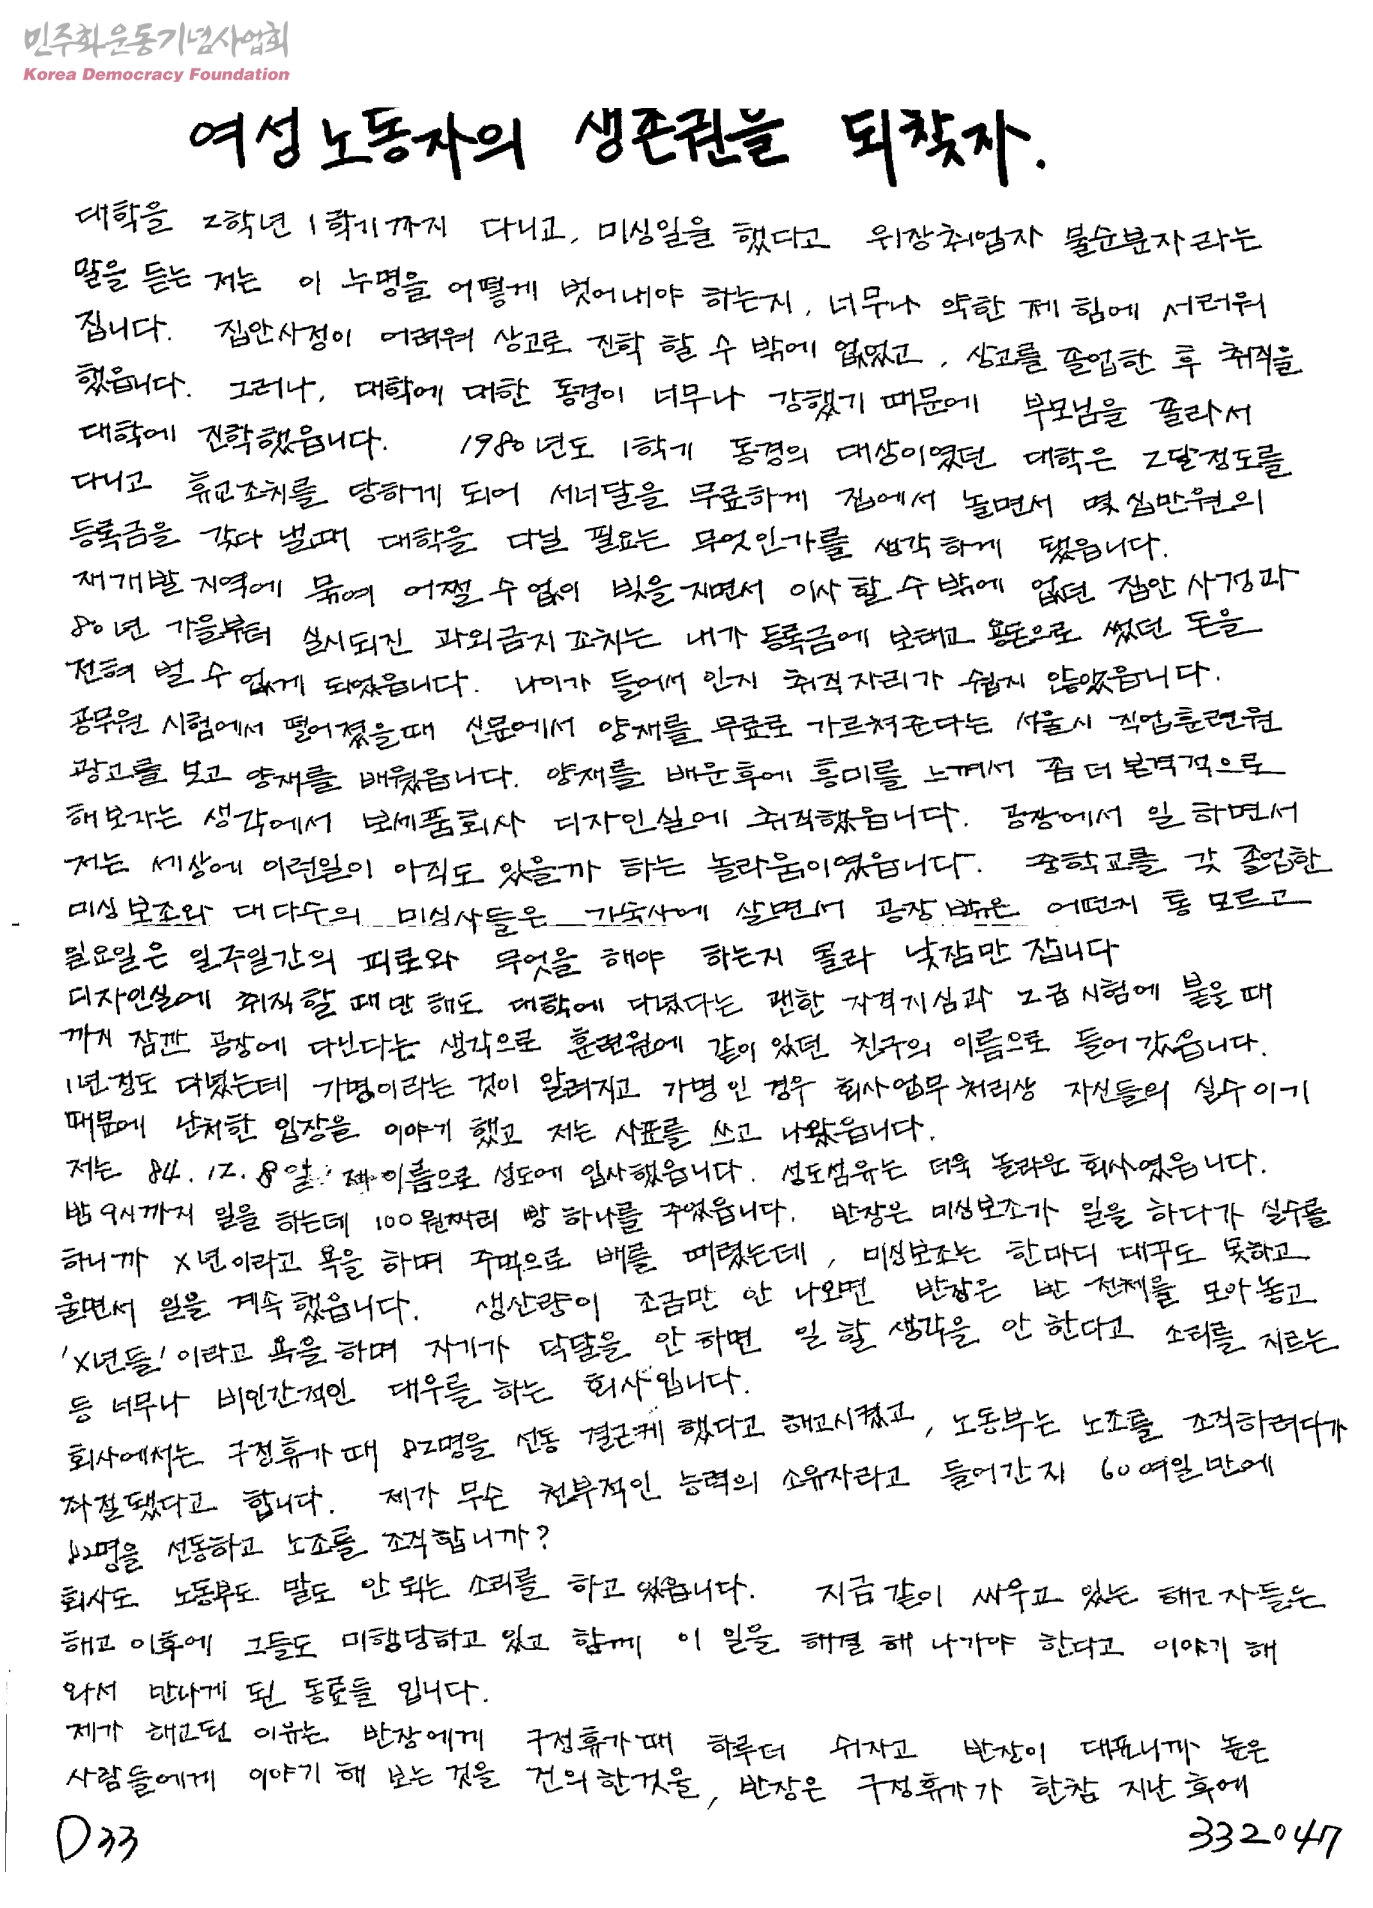 민주화운동기념사업회
Korea Democracy Foundation
여성노동자의 생존권을 되찾자.
대학을 2학년 1학기까지 다니고, 미싱일을 했다고 위장취업자 불순분자라는
말을 듣는 저는 이 누명을 어떻게 벗어내야 하는지, 너무나 약한 제 힘에 서러워
집니다. 집안사정이 어려워 상고로 진학 할 수 밖에 없었고, 상고를 졸업한 후 취직을
했읍니다. 그러나, 대학에 대한 동경이 너무나 강했기 때문에 부모님을 졸라서
대학에 진학했읍니다. 1980년도 1학기 동경의 대상이였던 대학은 2달정도를
다니고 휴교조치를 당하게 되어 서너달을 무료하게 집에서 놀면서 몇 십만원의
등록금을 갖다 낼때 대학을 다닐 필요는 무엇인가를 생각하게 됐읍니다.
재개발지역에 묶여 어쩔 수 없이 빚을 지면서 이사 할 수 밖에 없던 집안 사정과
80년 가을부터 실시되진 과외금지 조치는 내가 등록금에 보태고 용돈으로 썼던 돈을
전혀 벌 수 없게 되었읍니다. 나이가 들어서 인지 취직자리가 쉽지 않았읍니다.
공무원 시험에서 떨어졌을때 신문에서 양재를 무료로 가르쳐준다는 서울시 직업훈련원
광고를 보고 양재를 배웠읍니다. 양재를 배운후에 흥미를 느껴서 좀 더 본격적으로
해보자는 생각에서 보세품회사 디자인실에 취직했읍니다. 공장에서 일 하면서
저는 세상에 이런일이 아직도 있을까 하는 놀라움이였읍니다. 중학교를 갓 졸업한
미싱보조와 대다수의 미싱사들은 기숙사에 살면서 공장 밖은 어떤지 통 모르고
일요일은 일주일간의 피로와 무엇을 해야 하는지 몰라 낮잠만 잡니다
디자인실에 취직할 때만 해도 대학에 다녔다는 괜한 자격지심과 2급시험에 붙을 때
까지 잠깐 공장에 다닌다는 생각으로 훈련원에 같이 있던 친구의 이름으로 들어 갔읍니다.
1년정도 다녔는데 가명이라는 것이 알려지고 가명인 경우 회사업무처리상 자신들의 실수이기
때문에 난처한 입장을 이야기 했고 저는 사표를 쓰고 나왔읍니다.
저는 84.12.8일 제 이름으로 성도에 입사했읍니다. 성도섬유는 더욱 놀라운 회사였읍니다.
밤 9시까지 일을 하는데 100원짜리 빵 하나를 주었읍니다. 반장은 미싱보조가 일을 하다가 실수를
하니까 X년이라고 욕을 하며 주먹으로 배를 때렸는데, 미싱보조는 한마디 대꾸도 못하고
울면서 일을 계속했읍니다. 생산량이 조금만 안 나와면 반장은 반 전체를 모아놓고
'X년들'이라고 욕을하며 자기가 닥달을 안 하면 일 할 생각을 안 한다고 소리를 지르는
등 너무나 비인간적인 대우를 하는 회사입니다.
회사에서는 구정휴가때 82명을 선동 결근케 했다고 해고시켰고, 노동부는 노조를 조직하려다가
좌절됐다고 합니다. 제가 무슨 천부적인 능력의 소유자라고 들어간지 60여일만에
82명을 선동하고 노조를 조직합니까?
회사도 노동부도 말도 안 되는 소리를 하고 있읍니다. 지금같이 싸우고 있는 해고자들은
해고 이후에 그들도 미행당하고 있고 함께 이 일을 해결 해 나가야 한다고 이야기 해
와서 만나게 된 동료들 입니다.
제가 해고된 이유는 반장에게 구정휴가때 하루더 쉬자고 반장이 대표니까 높은
사람들에게 이야기 해 보는 것을 건의한것을, 반장은 구정휴가가 한참 지난 후에
D33
332047